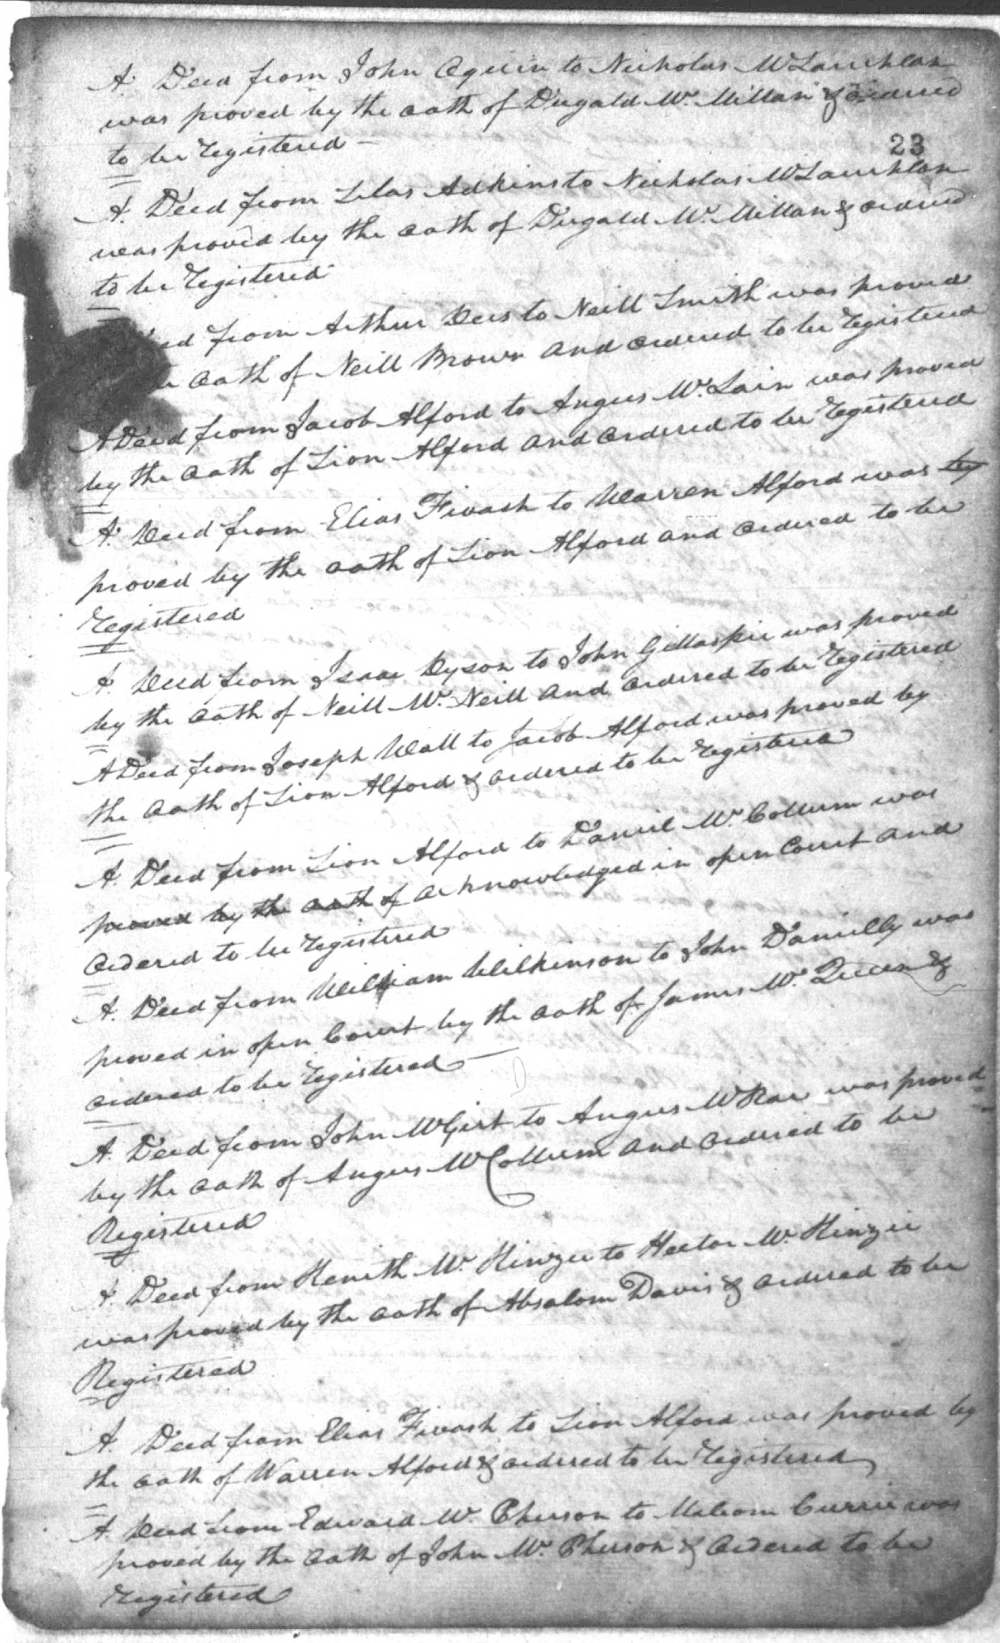 A Deed from John Aguin to Nicholas McLauchlan
was proved by the oath of Dugald Mc. Millan & ordered
to be registered
23
A. Deed from Silas Adkins to Nicholas McLauchlan
was proved by the oath of Dugald Mc. Millan & ordered
to be registered
from Arthur Dees to Neill Smith was proved
oath of Neill Brown and ordered to be registered
A Deed from Jacob Alford to Angus Mc. Lain was proved
by the oath of Lion Alford and ordered to be registered
A. Deed from Elias Fivash to Warren Alford was by
proved by the oath of Lion Alford and ordered to be
registered
A Deed from Isaac Dyson to John Gillaspie was proved
by the oath of Neill Mc. Neill and ordered to be registered
A Deed from Joseph Wall to Jacob Alford was proved by
the oath of Lion Alford & ordered to be registered
A. Deed from Lion Alford to Daniel Mc. Collum was
proved by the oath of acknowledged in open Court and
ordered to be registered
A. Deed from William Wilkinson to John Danielly was
proved in open Court by the oath of James Mc. Queen &
ordered to be registered
A. Deed from John McGirt to Angus McRae was proved
by the oath of Angus McCollum and ordered to be
Registered
A Deed from Kenith Mc. Kinzie to Hector Mc. Kinzie
was proved by the oath of Absalom Davis & ordered to be
Registered
A. Deed from Elias Fivash to Lion Alford was proved by
the oath of Warren Alford & ordered to be registered
A. Deed from Edward Mc. Pherson to Malcom Currie was
proved by the oath of John Mc. Pherson & ordered to be
registered